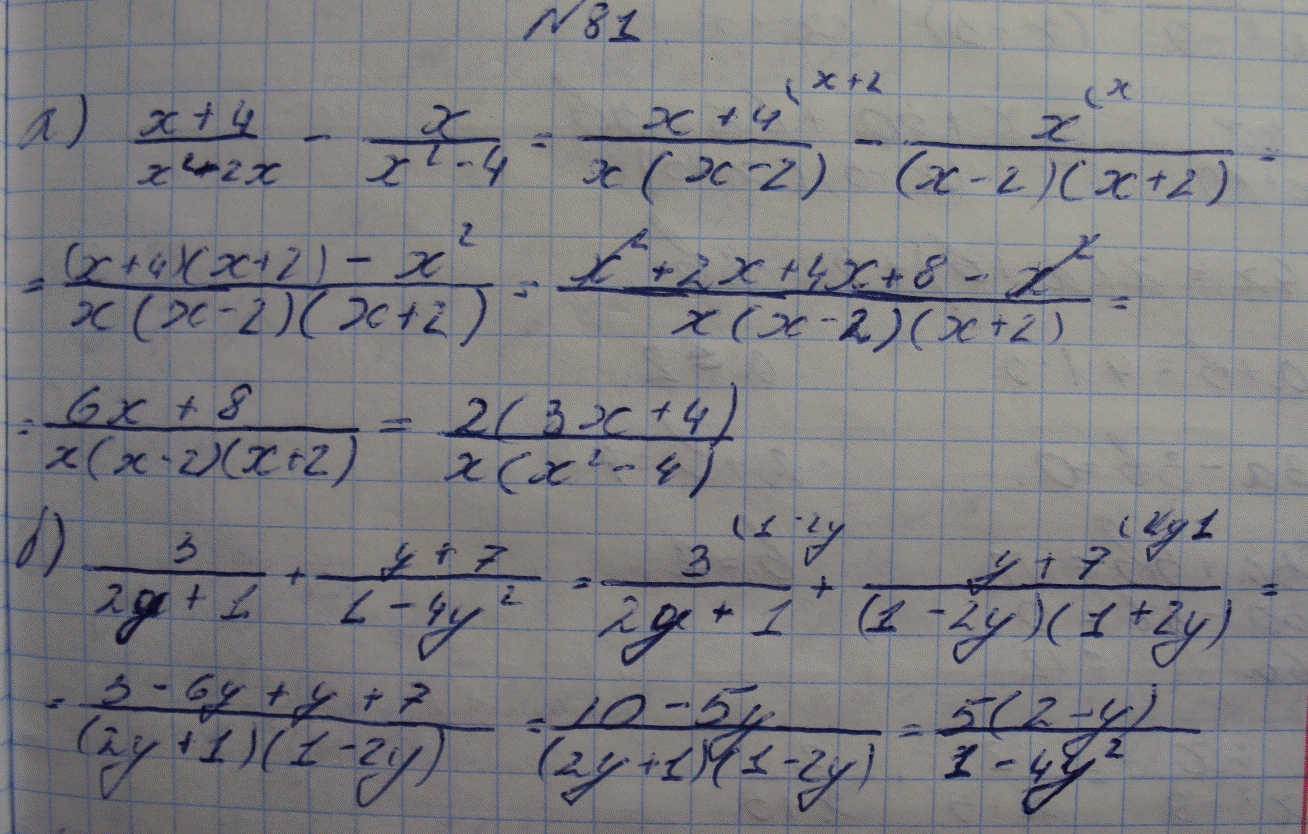 №81
а) \frac{x+4}{x²-2x} - \frac{x}{x²-4} = \frac{x+4^{(x+2}}{x(x-2)} - \frac{x^{(x}}{(x-2)(x+2)} =
= \frac{(x+4)(x+2)-x²}{x(x-2)(x+2)} = \frac{x²+2x+4x+8-x²}{x(x-2)(x+2)} =
= \frac{6x+8}{x(x-2)(x+2)} = \frac{2(3x+4)}{x(x²-4)}
б) \frac{3}{2y+1} + \frac{y+7}{1-4y²} = \frac{3^{(1-2y}}{2y+1} + \frac{y+7}{(1-2y)(1+2y)} =
= \frac{3-6y+y+7}{(2y+1)(1-2y)} = \frac{10-5y}{(2y+1)(1-2y)} = \frac{5(2-y)}{1-4y²}